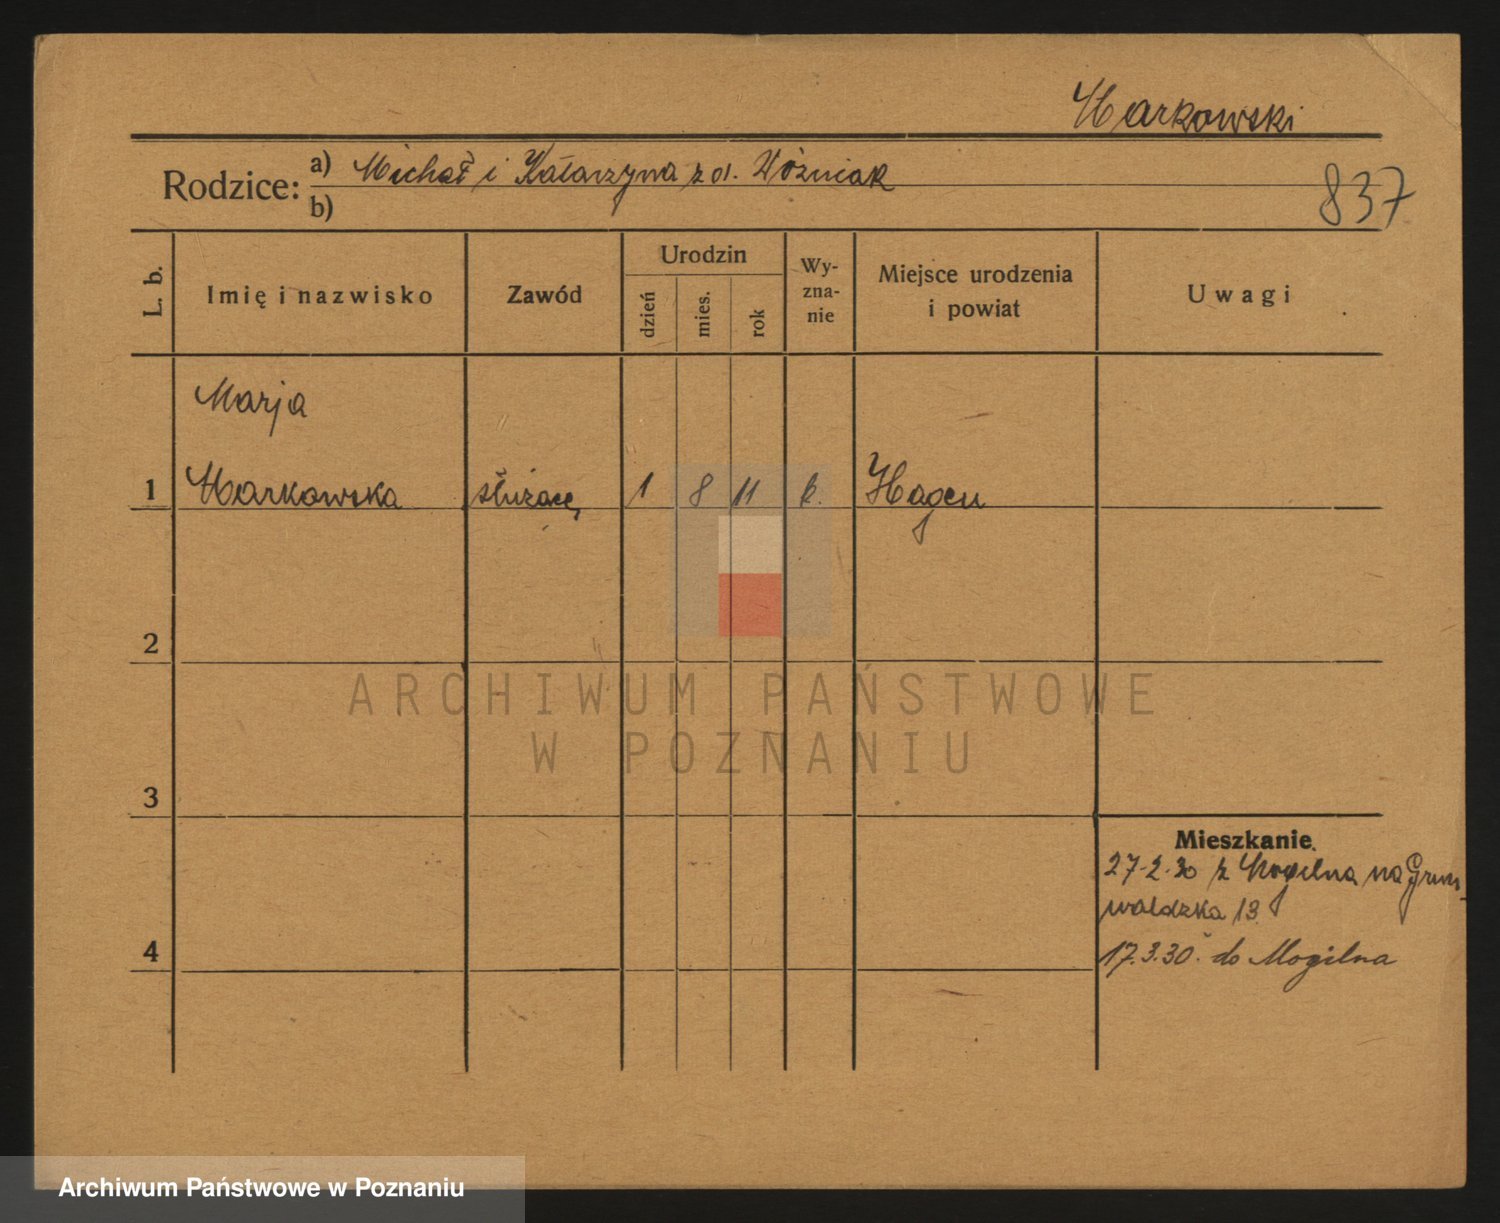 Markowski
Rodzice: a) Michał i Katarzyna z d. Woźniak
b)
837
L. b.
Imię i nazwisko
Zawód
Urodzin
dzień
mies.
rok
Wy-
zna-
nie
Miejsce urodzenia
i powiat
Uwagi
Marja
1 Markowska służąca 1 8 11 k. Hagen
2
ARCHIWUM PAŃSTWOWE
W POZNANIU
3
Mieszkanie.
27.2.30 z Mogilna na Grun-
waldzka 13
4
17.3.30. do Mogilna
Archiwum Państwowe w Poznaniu